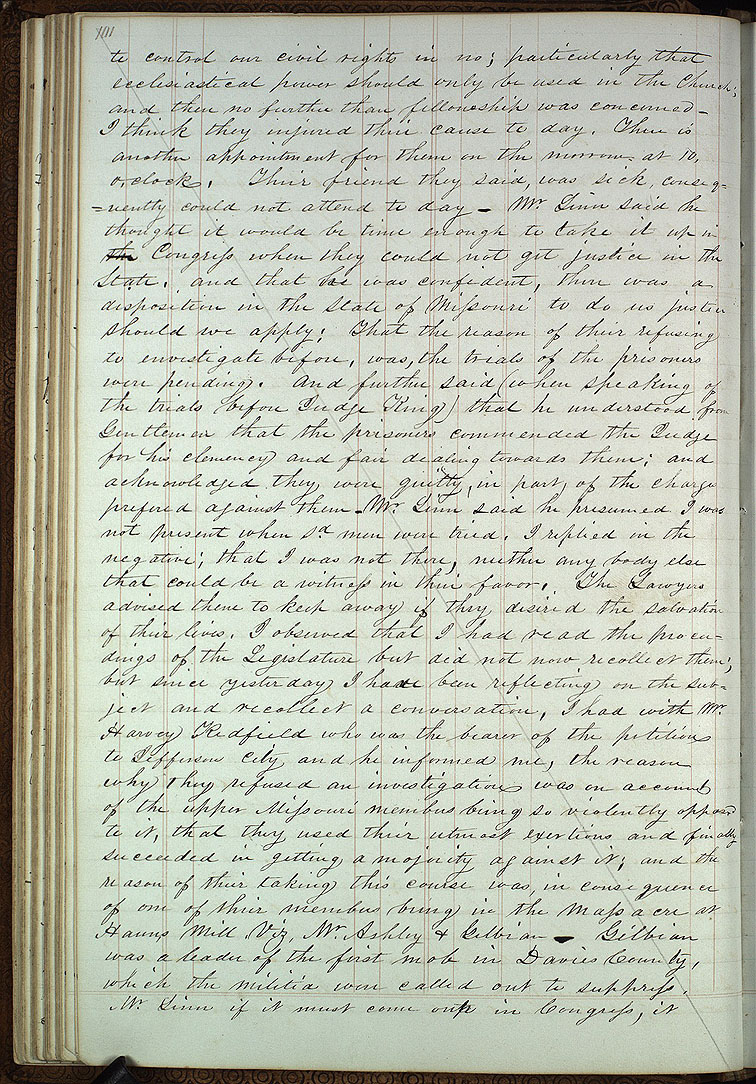 101
to control our civil rights in no; particularly that
ecclesiastical power should only be used in the Church;
and then no further than fellowship was concerned—
I think they injured their cause to day. There is
another appointment for them on the morrow at 10,
o,clock. Their friend they said, was sick, conseq-
=uently could not attend to day— Mr. Linn said he
thought it would be time enough to take it up in
the Congress when they could not get justice in the
State. and that he was confident, there was a
disposition in the State of Missouri to do us justice
should we apply; That the reason of their refusing
to envestigate before, was, the trials of the prisoners
were pending. And further said (when speaking of
the trials before Judge King) that he understood from
Gentlemen that the prisoners commended the Judge
for his clemency and fair dealing towards them; and
acknowledged they were guilty, in part, of the charges
prefered against them— Mr. Linn said he presumed I was
not present when sd men were tried. I replied in the
negative; that I was not there, neither any body else
that could be a witness in their favor. The Lawyers
advised them to keep away if they desired the salvation
of their lives. I observed that I had read the procee-
dings of the Legislature but did not now recollect them;
but since yesterday I have been reflecting on the sub-
ject and recollect a conversation, I had with Mr.
Harvey Redfield who was the bearer of the petition
to Jefferson City and he informed me, the reason
why they refused an investigation was on account
of the upper Missouri members being so violently opposed
to it, that they used their utmost exertions and finally
succeeded in getting a majority against it; and the
reason of their taking this course was, in consequence
of one of their members being in the Massacre at
Hauns Mill Viz, Mr. Ashley & Gilbian — Gilbian
was a leader of the first mob in Davies County,
which the militia were called out to suppress.
Mr. Linn if it must come out in Congress, it